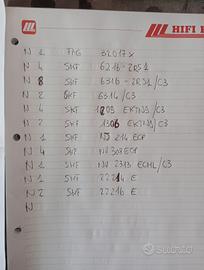 HIFI
N 1 FAG 32017X
N 4 SKF 6216-2RS1
N 8 SKF 6316-2RS1/C3
N 2 SKF 6314/C3
N 4 SKF 1209 EKTN9/C3
N 2 SKF 1306 EKTN9/C3
N 1 SKF NJ 214 ECP
N 4 SKF NU 308 ECP
N 1 SKF NU 2313 ECML/C3
N 1 SKF 22214 E
N 2 SKF 22216 E
N
subito